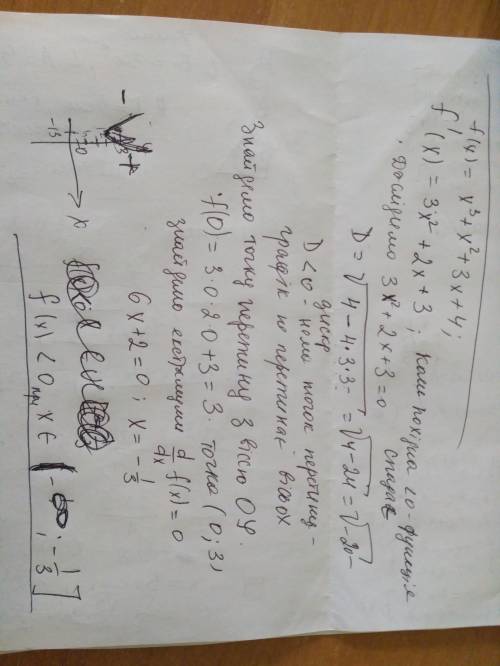 f(x) = x³ + x² + 3x + 4;
f'(x) = 3x² + 2x + 3; Коли похідна <0 - функція спадає
Дослідемо 3x² + 2x + 3 = 0
D = √4 - 4·3·3 = √4 - 24 = √-20 -
дискр
D < 0 - нема точок перетину -
графік не перетинає вісь OX
Знайдемо точку перетину з віссю OY.
f(0) = 3·0·20 + 3 = 3. точка (0; 3)
знайдемо екстемуми d/dx f(x) = 0
6x + 2 = 0; x = -1/3
f(x) < 0 при x ∈ (-∞; -1/3]
-
y
3
x
-1/3
0